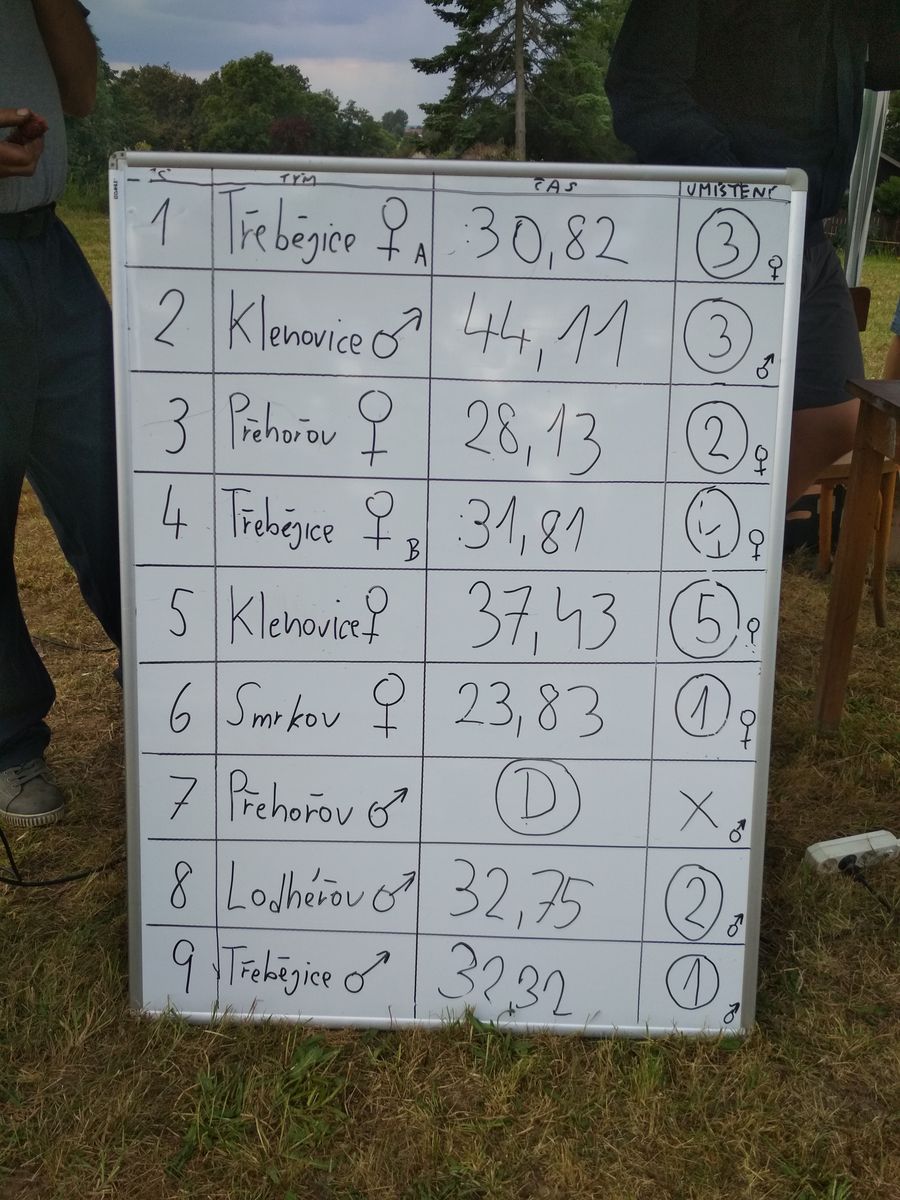 Č TÝM ČAS UMÍSTĚNÍ
1 Třebějice ♀ A 30,82 3 ♀
2 Klenovice ♂ 44,11 3 ♂
3 Přehořov ♀ 28,13 2 ♀
4 Třebějice ♀ B 31,81 4 ♀
5 Klenovice ♀ 37,43 5 ♀
6 Smrkov ♀ 23,83 1 ♀
7 Přehořov ♂ D X ♂
8 Lodhéřov ♂ 32,75 2 ♂
9 Třebějice ♂ 32,32 1 ♂